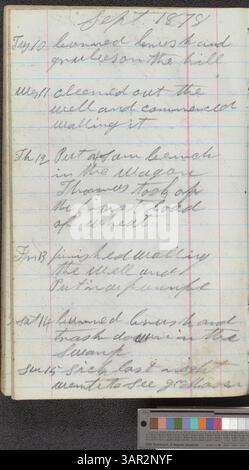 Sept. 1878
Tus 10 burned brush and
on the hill
Wes 11 cleened out the
well and commenced
walling it
Th 12 Put a bench
in the wagon
Thomas took of
the first load
of wheat
Fri 13 finished walling
the well and
Put in a pump
Sat 14 burned brush and
trash down in the
Swamp
Sun 15 sick last night
went to see
alamy
Image ID: 3AR2NYF
www.alamy.com